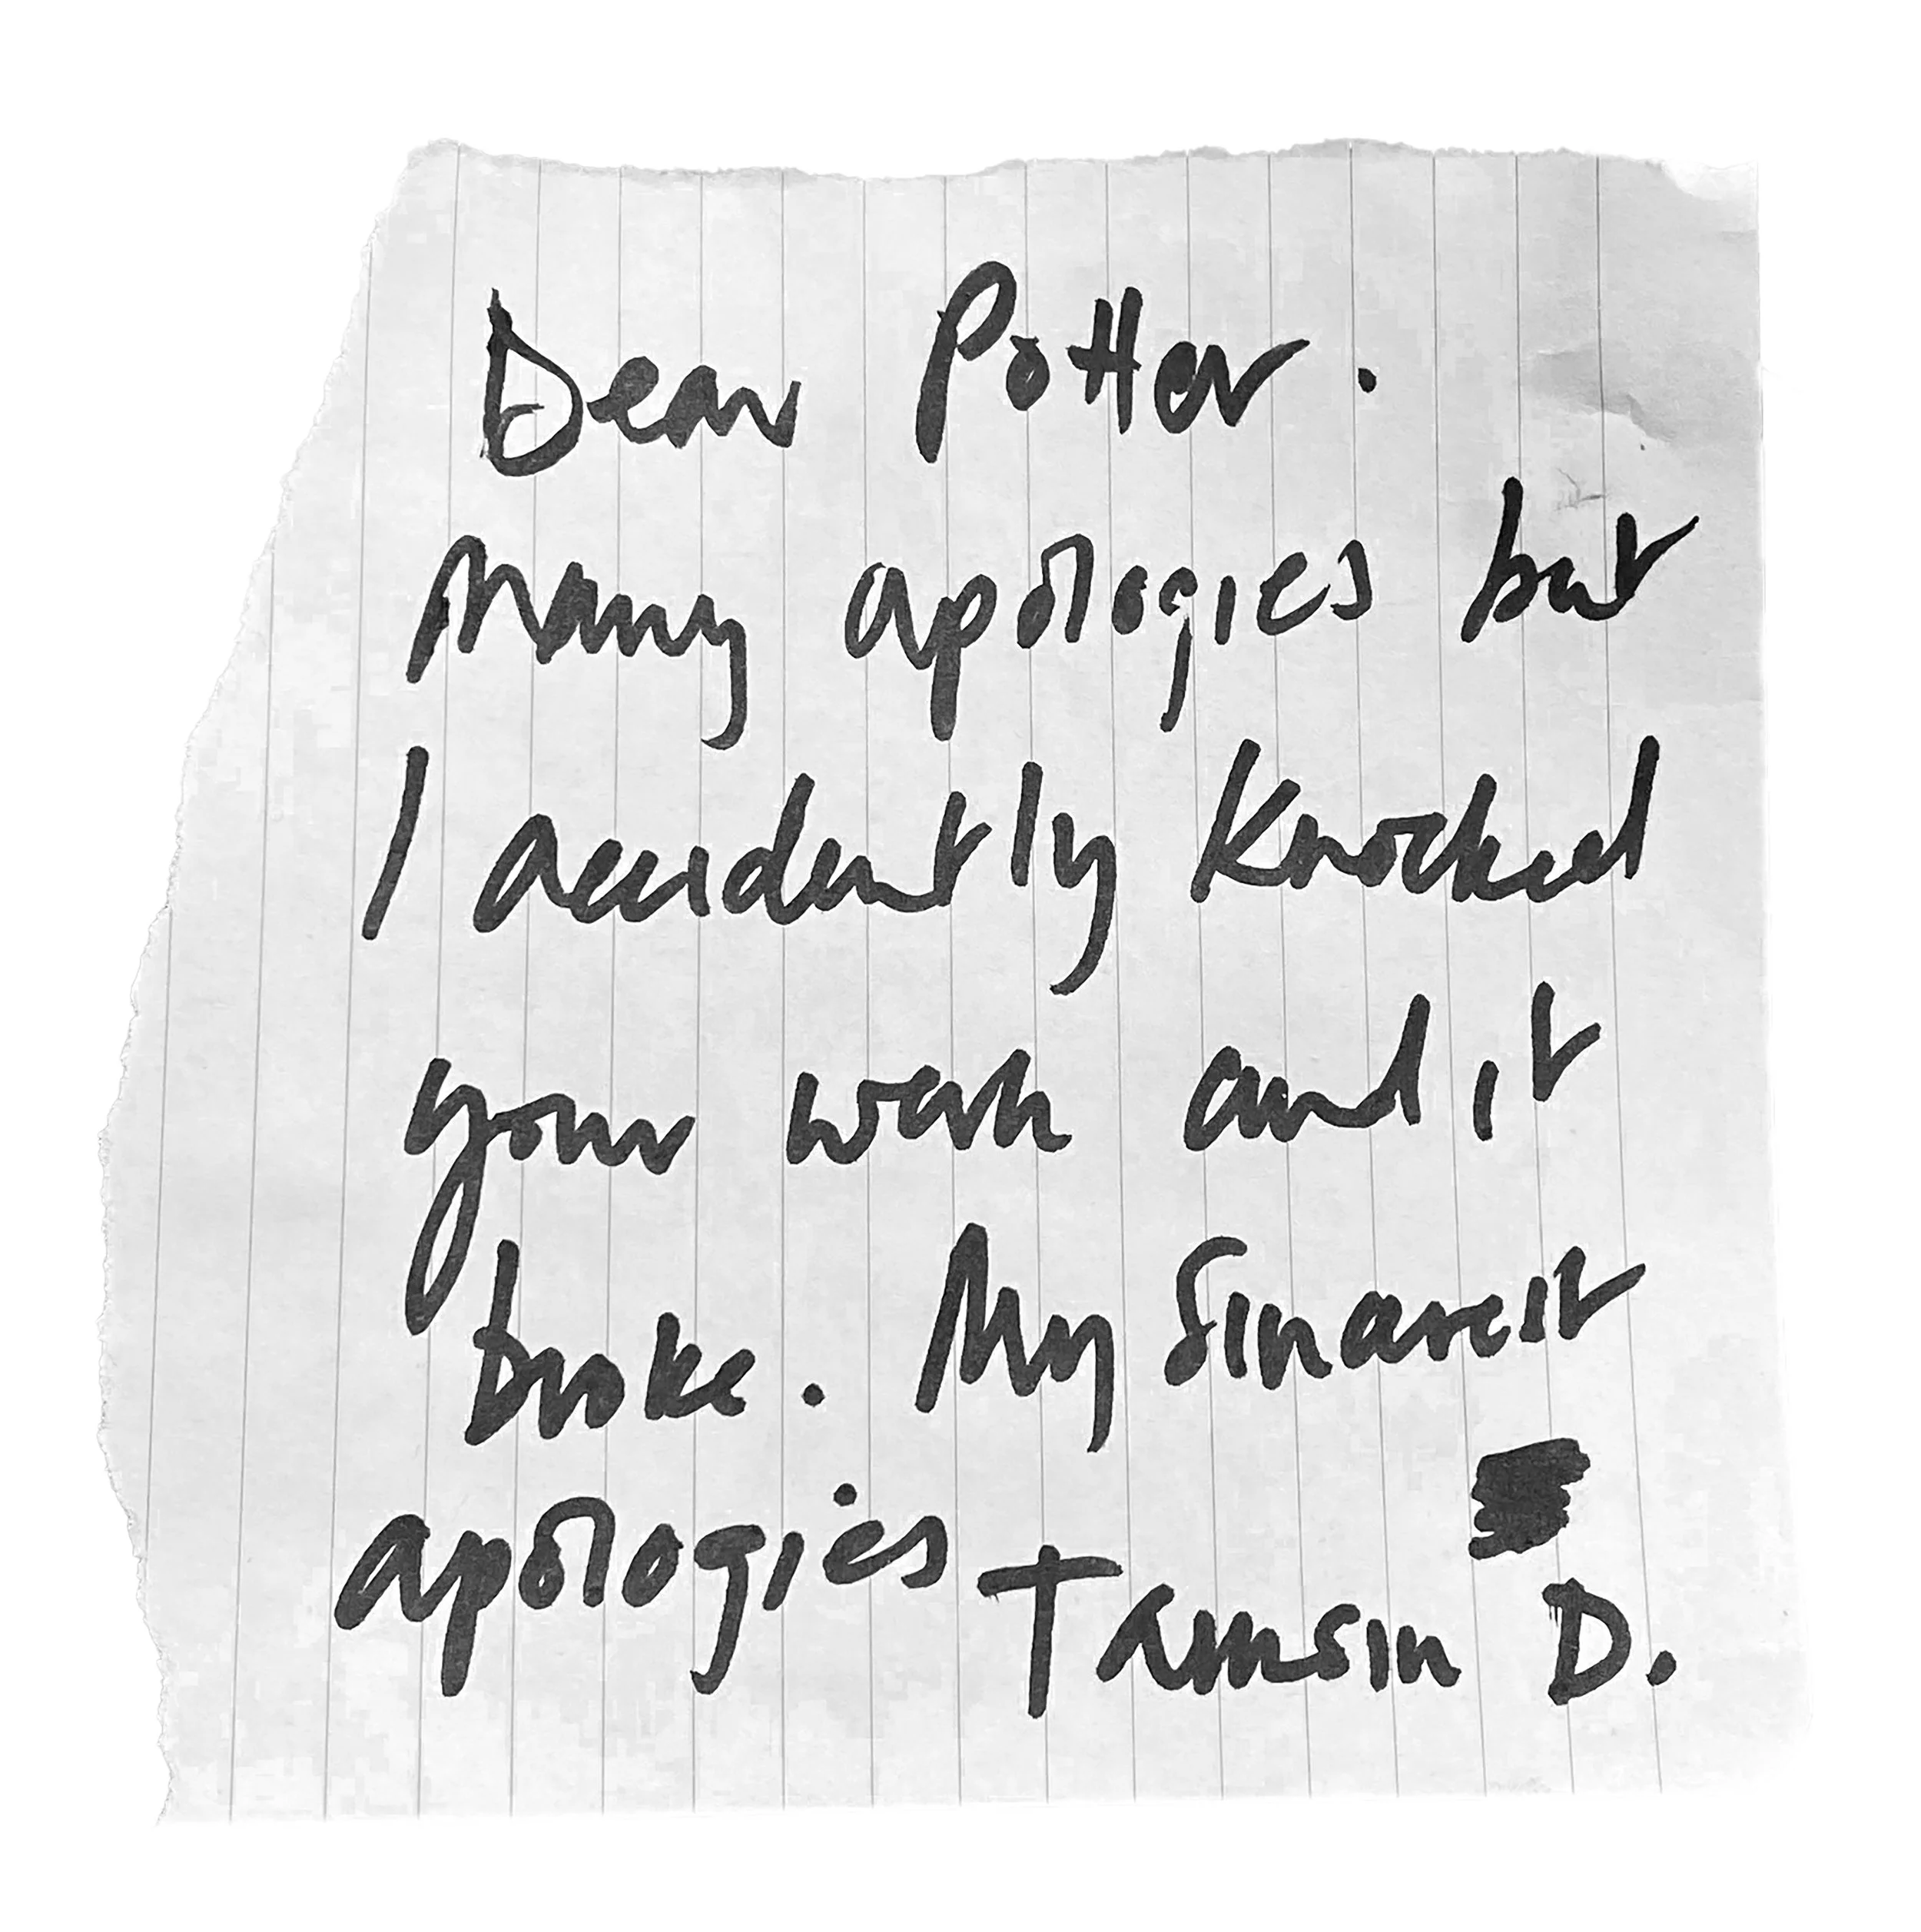 Dear Potter.
Many apologies but
I accidently knocked
your work and it
broke. My sinarest
apologies
Tamsin D.